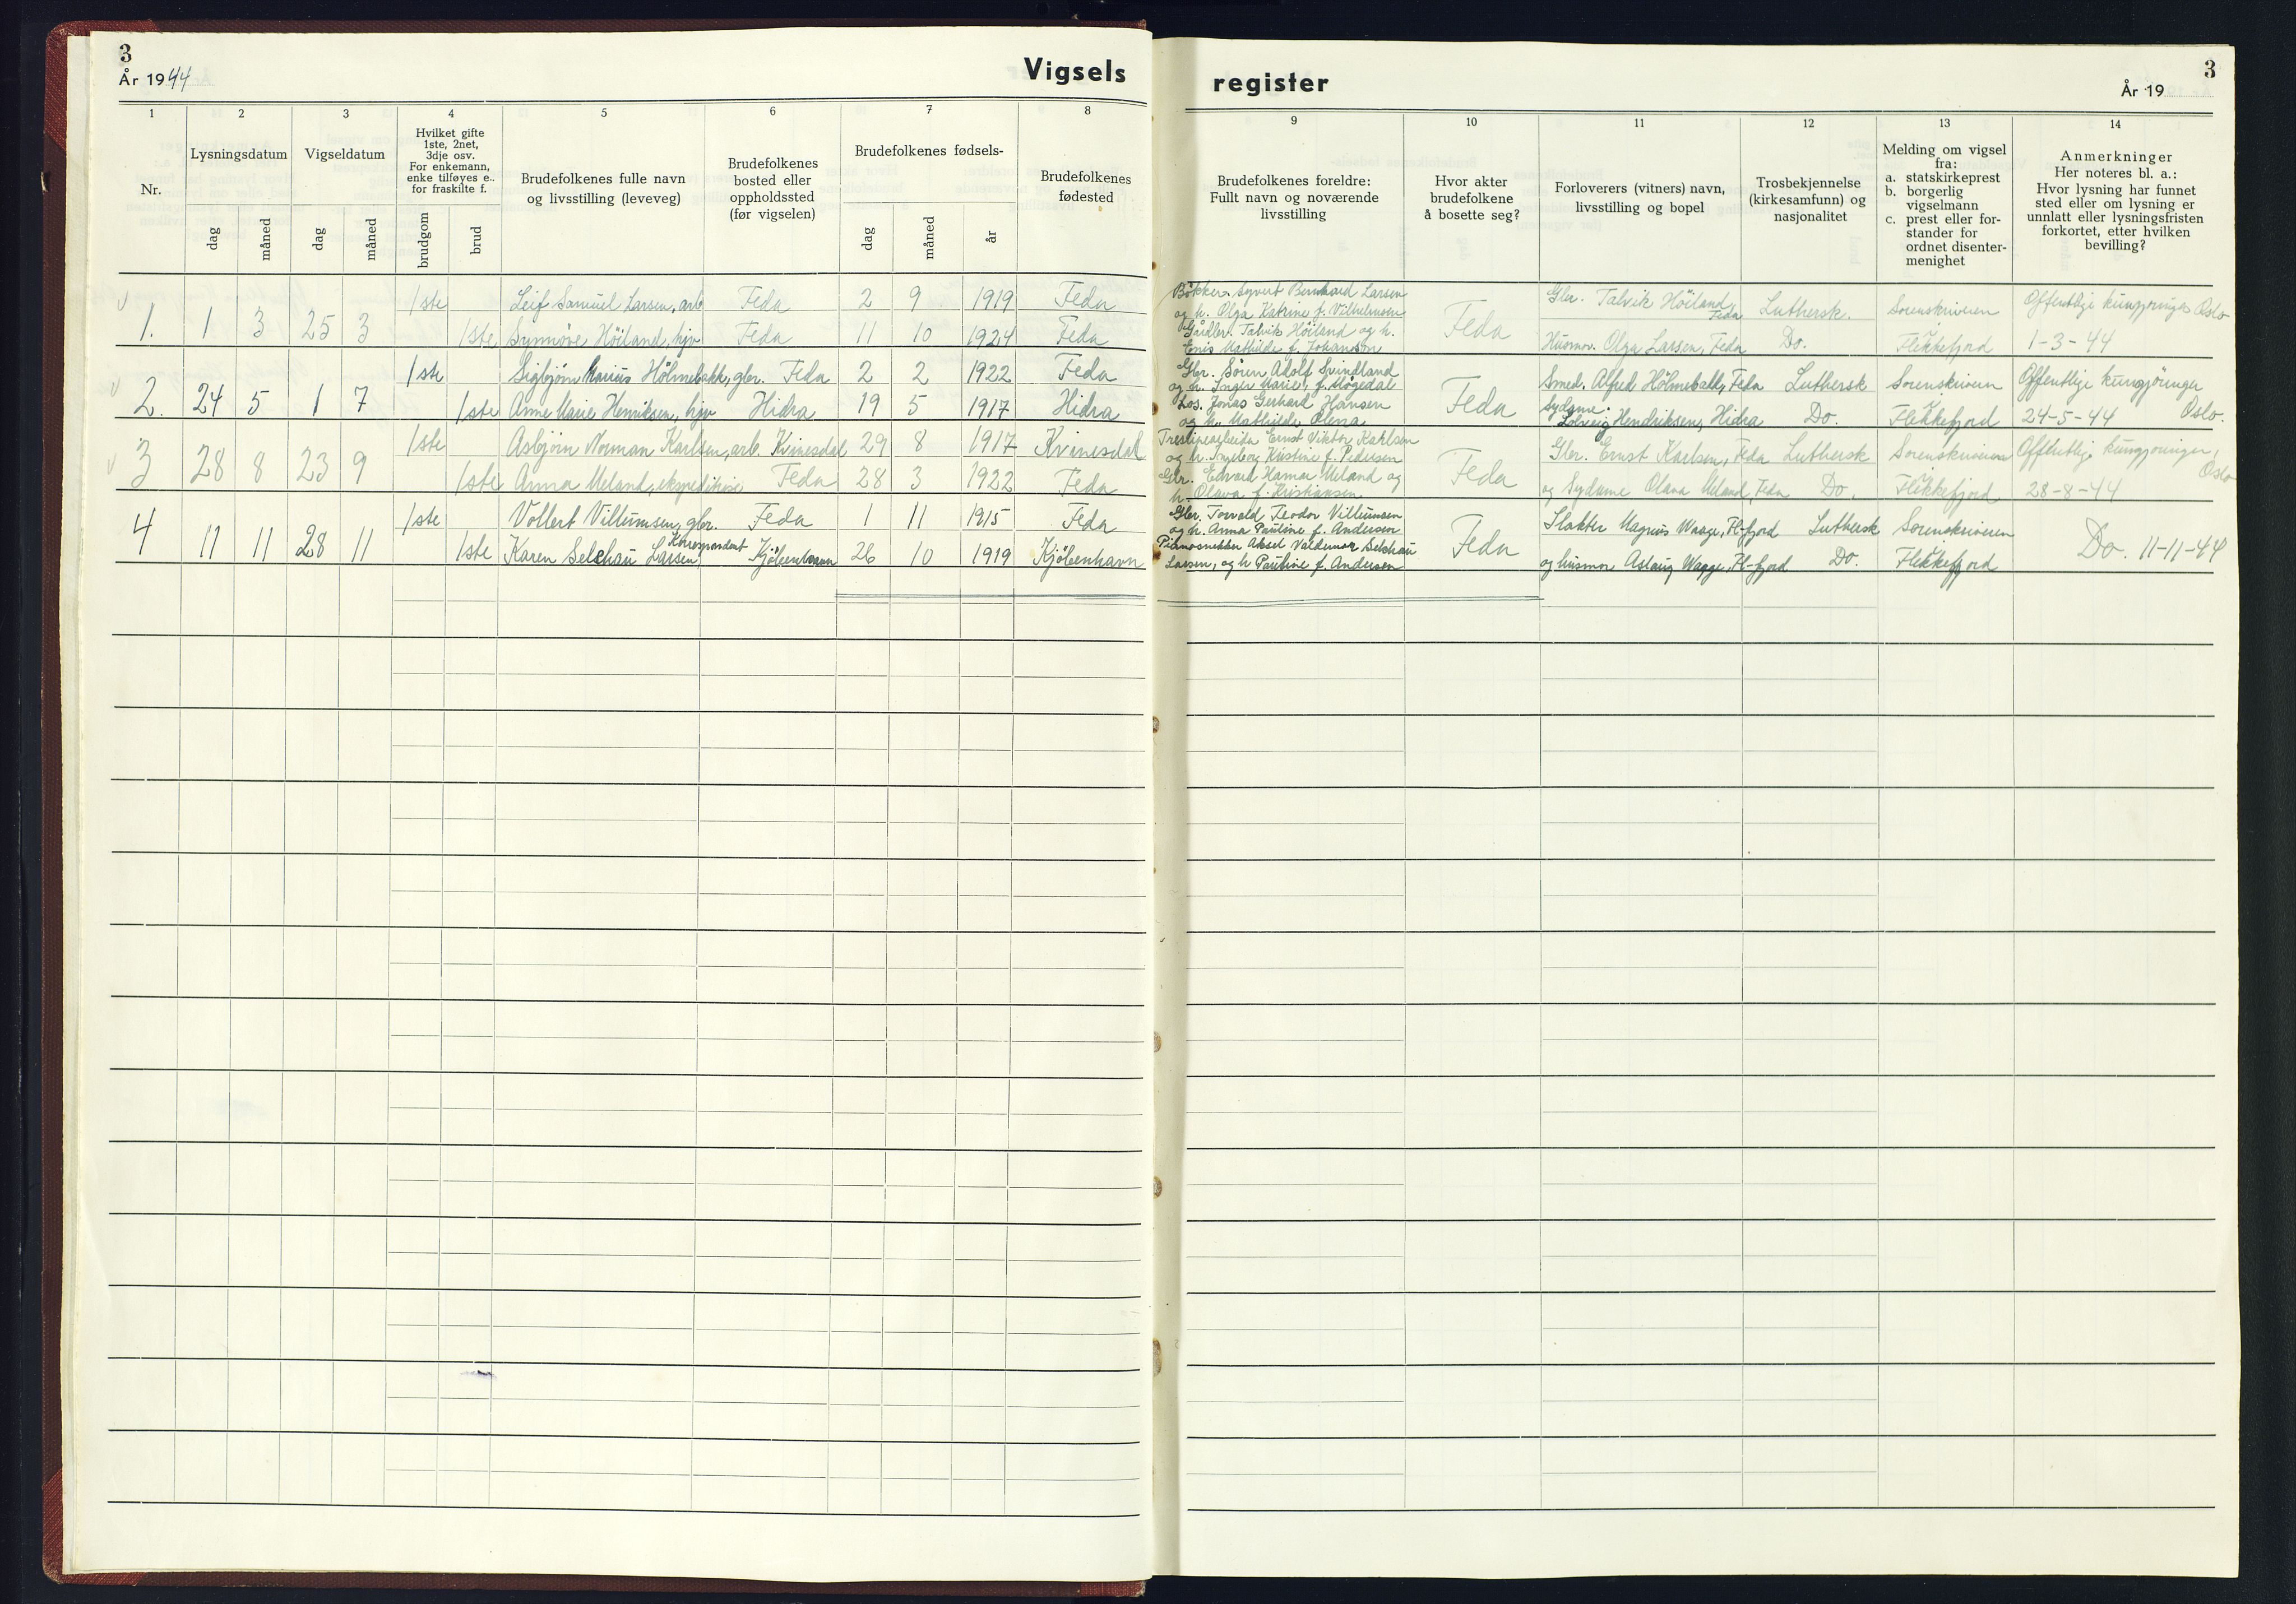 3
År 1944
Vigsels
register
3
År 19
1
2
3
4
5
6
7
8
9
10
11
12
13
14
Nr.
Lysningsdatum
dag
måned
Vigseldatum
dag
måned
Hvilket gifte
1ste, 2net,
3dje osv.
For enkemann,
enke tilføyes e.
for fraskilte f.
brudgom
brud
Brudefolkenes fulle navn
og livsstilling (leveveg)
Brudefolkenes
bosted eller
oppholdssted
(før vigselen)
Brudefolkenes fødsels-
dag
måned
år
Brudefolkenes
fødested
Brudefolkenes foreldre:
Fullt navn og noværende
livsstilling
Hvor akter
brudefolkene
å bosette seg?
Forloverers (vitners) navn,
livsstilling og bopel
Trosbekjennelse
(kirkesamfunn) og
nasjonalitet
Melding om vigsel
fra:
a. statskirkeprest
b. borgerlig
vigselmann
c. prest eller for-
stander for
ordnet disenter-
menighet
Anmerkninger
Her noteres bl. a.:
Hvor lysning har funnet
sted eller om lysning er
unnlatt eller lysningsfristen
forkortet, etter hvilken
bevilling?
1. 1 3 25 3
1ste Leif Samuel Larsen, arb Feda 2 9 1919 Feda
1ste Synnöve Höiland, hjv Feda 11 10 1924 Feda
Bökker. Syvert Bernhard Larsen
og h. Olga Katrine f. Vilhelmsen
Gårdbr. Talvik Höiland og h.
Enis Mathilde f. Johanson
Feda
Gbr. Talvik Höiland, Feda
Husmor. Olga Larsen, Feda
Luthersk.
Do.
Sorenskriveren
Flekkefjord
Offentlige kungjøringer Oslo
1-3-44
2. 24 5 1 7
1ste Sigbjörn Marius Hölmebakk, gbr. Feda 2 2 1922 Feda
1ste Anne Marie Henriksen, hjv Hidra 19 5 1917 Hidra
Gbr. Sören Adolf Svindland
og h. Inger Marie, f. Mögedal
Los. Jonas Gerhard Hansen
og h. Mathilde Olena
Feda
Smed. Alfred Hölmebakk, Feda
Sydame.
Solveig Hendriksen, Hidra
Luthersk
Do.
Sorenskriveren
Flekkefjord
Offentlige kungjöringer
24-5-44 Oslo.
3 28 8 23 9
1ste Asbjörn Norman Karlsen, arb. Kvinesdal 29 8 1917 Kvinesdal
1ste Anna Meland, ekspeditrise Feda 28 3 1922 Feda
Ernst Viktor Karlsen
og h. Ingeborg Kristine f. Pedersen
Gbr. Edvard Kamar Meland og
h. Olava f. Kristiansen
Feda
Gbr. Ernst Karlsen, Feda
og Sydame Olava Meland, Feda
Luthersk
Do.
Sorenskriveren
Flekkefjord
Offentlige kungjøringer,
Oslo
28-8-44
4 11 11 28 11
1ste Vollert Villumsen, gbr. Feda 1 11 1915 Feda
Korrespondent
1ste Karen Selchau Larsen, Kjöbenhavn 26 10 1919 Kjöbenhavn
Gbr. Torvald Teodor Villumsen
og h. Anna Pauline f. Andersen
Pianosnekker Aksel Valdemar Selchau
Larsen, og h Pauline f. Andersen
Feda
Slakter Magnus Waage, Fl-fjord
og husmor Aslaug Waage, Fl-fjord
Luthersk
Do.
Sorenskriveren
Flekkefjord
Do. 11-11-44